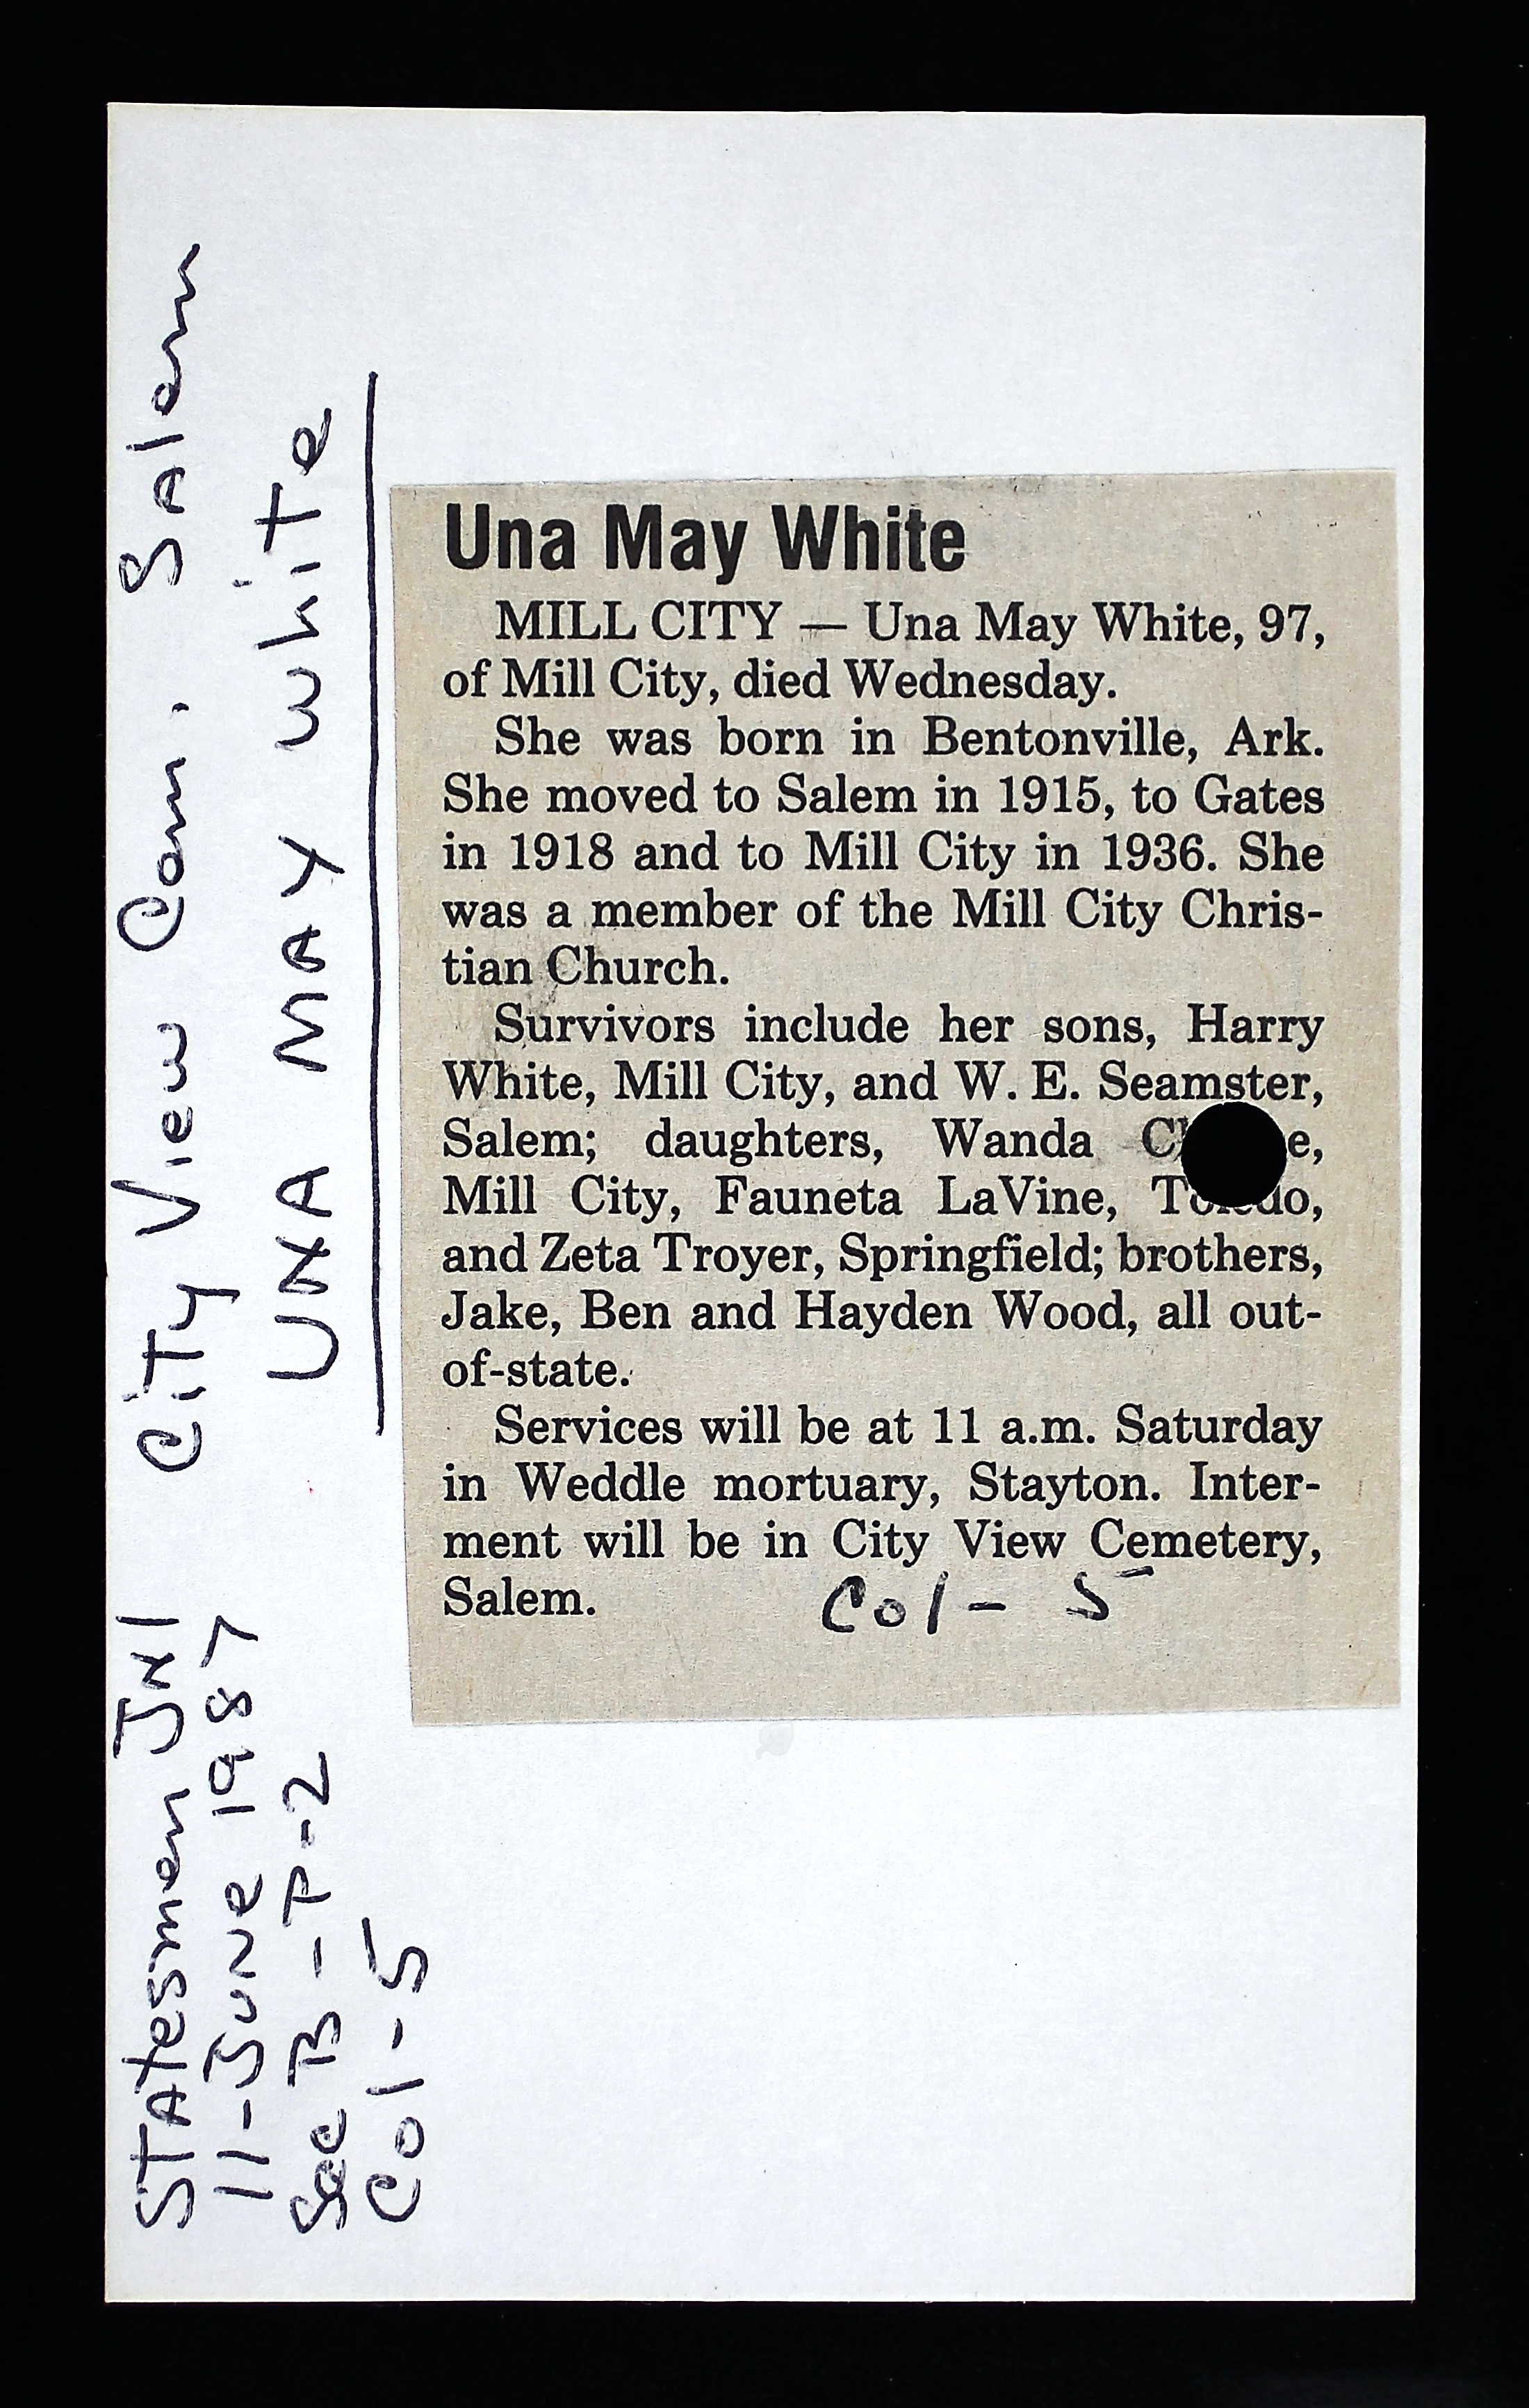 City View Cem. Salem
UNA MAY White
Statesman Jnl
11-June 1987
Sec B-P-2
Col-5
Una May White
MILL CITY — Una May White, 97,
of Mill City, died Wednesday.
She was born in Bentonville, Ark.
She moved to Salem in 1915, to Gates
in 1918 and to Mill City in 1936. She
was a member of the Mill City Chris-
tian Church.
Survivors include her sons, Harry
White, Mill City, and W. E. Seamster,
Salem; daughters, Wanda
Mill City, Fauneta LaVine, Toledo,
and Zeta Troyer, Springfield; brothers,
Jake, Ben and Hayden Wood, all out-
of-state.
Services will be at 11 a.m. Saturday
in Weddle mortuary, Stayton. Inter-
ment will be in City View Cemetery,
Salem.
Col - 5